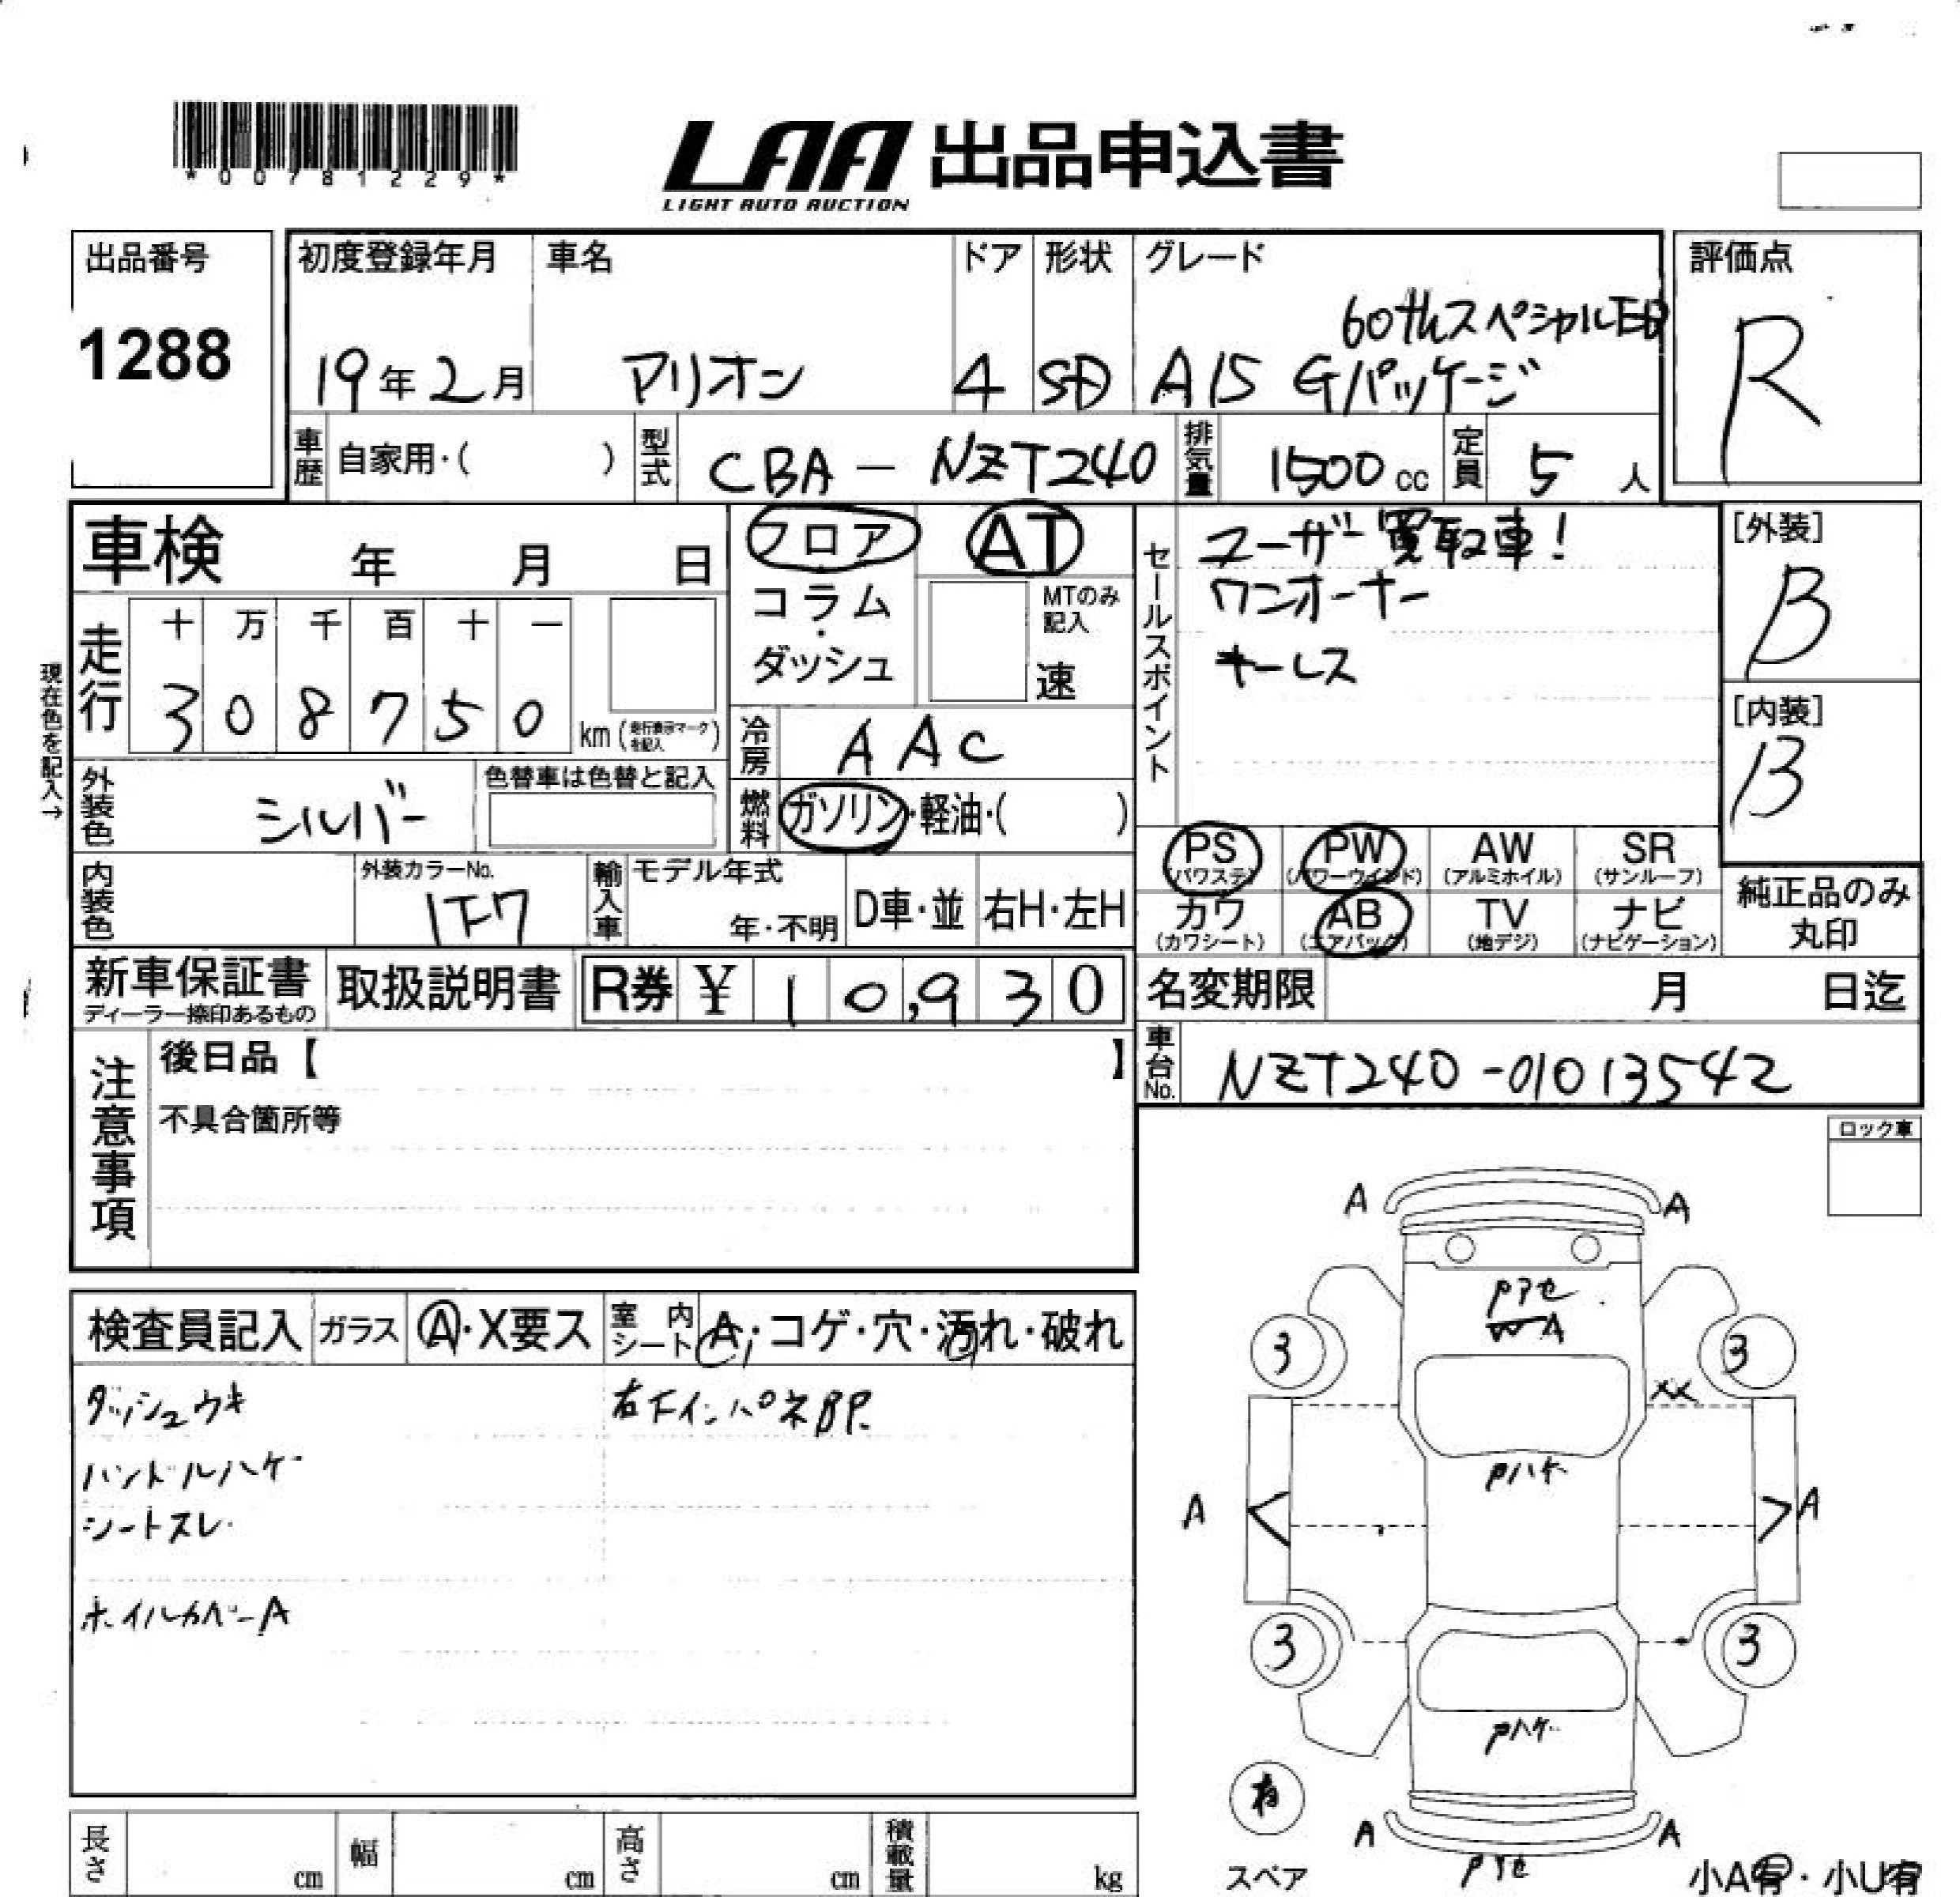 *00781229*
LAA 出品申込書
LIGHT AUTO AUCTION
出品番号
1288
初度登録年月
19年2月
車名
アリオン
ドア
4
形状
SD
グレード
60thスペシャルED
A15 Gパッケージ
評価点
R
車歴
自家用・( )
型式
CBA - NZT240
排気量
1500cc
定員
5人
車検 年 月 日
フロア
コラム
・
ダッシュ
AT
MTのみ
記入
速
セールスポイント
ユーザー買取車!
ワンオーナー
キーレス
[外装]
B
[内装]
B
現在色を記入→
走行
十 万 千 百 十 一
3 0 8 7 5 0
km (走行表示マークを記入)
冷房
AAC
外装色
シルバー
色替車は色替と記入
燃料
ガソリン・軽油・( )
PS
(パワステ)
PW
(パワーウインド)
AW
(アルミホイル)
SR
(サンルーフ)
カワ
(カワシート)
AB
(エアバック)
TV
(地デジ)
ナビ
(ナビゲーション)
純正品のみ
丸印
内装色
外装カラーNo.
1F7
輸入車
モデル年式
年・不明
D車・並
右H・左H
新車保証書
ディーラー捺印あるもの
取扱説明書
R券 ¥ 10,930
名変期限 月 日迄
注意事項
後日品【 】
不具合箇所等
車台No.
NZT240-01013542
ロック車
検査員記入
ガラス
A・X要ス
室内シート
A・コゲ・穴・汚れ・破れ
ダッシュウキ
右下インパネBP.
ハンドルハゲ
シートスレ
ホイルカバーA
A A
Pアセ
A
3 3
XX
Pハゲ
A A
3 3
Pハゲ
有
スペア
A A
Pアセ
小A有・小U有
長さ cm
幅 cm
高さ cm
積載量 kg